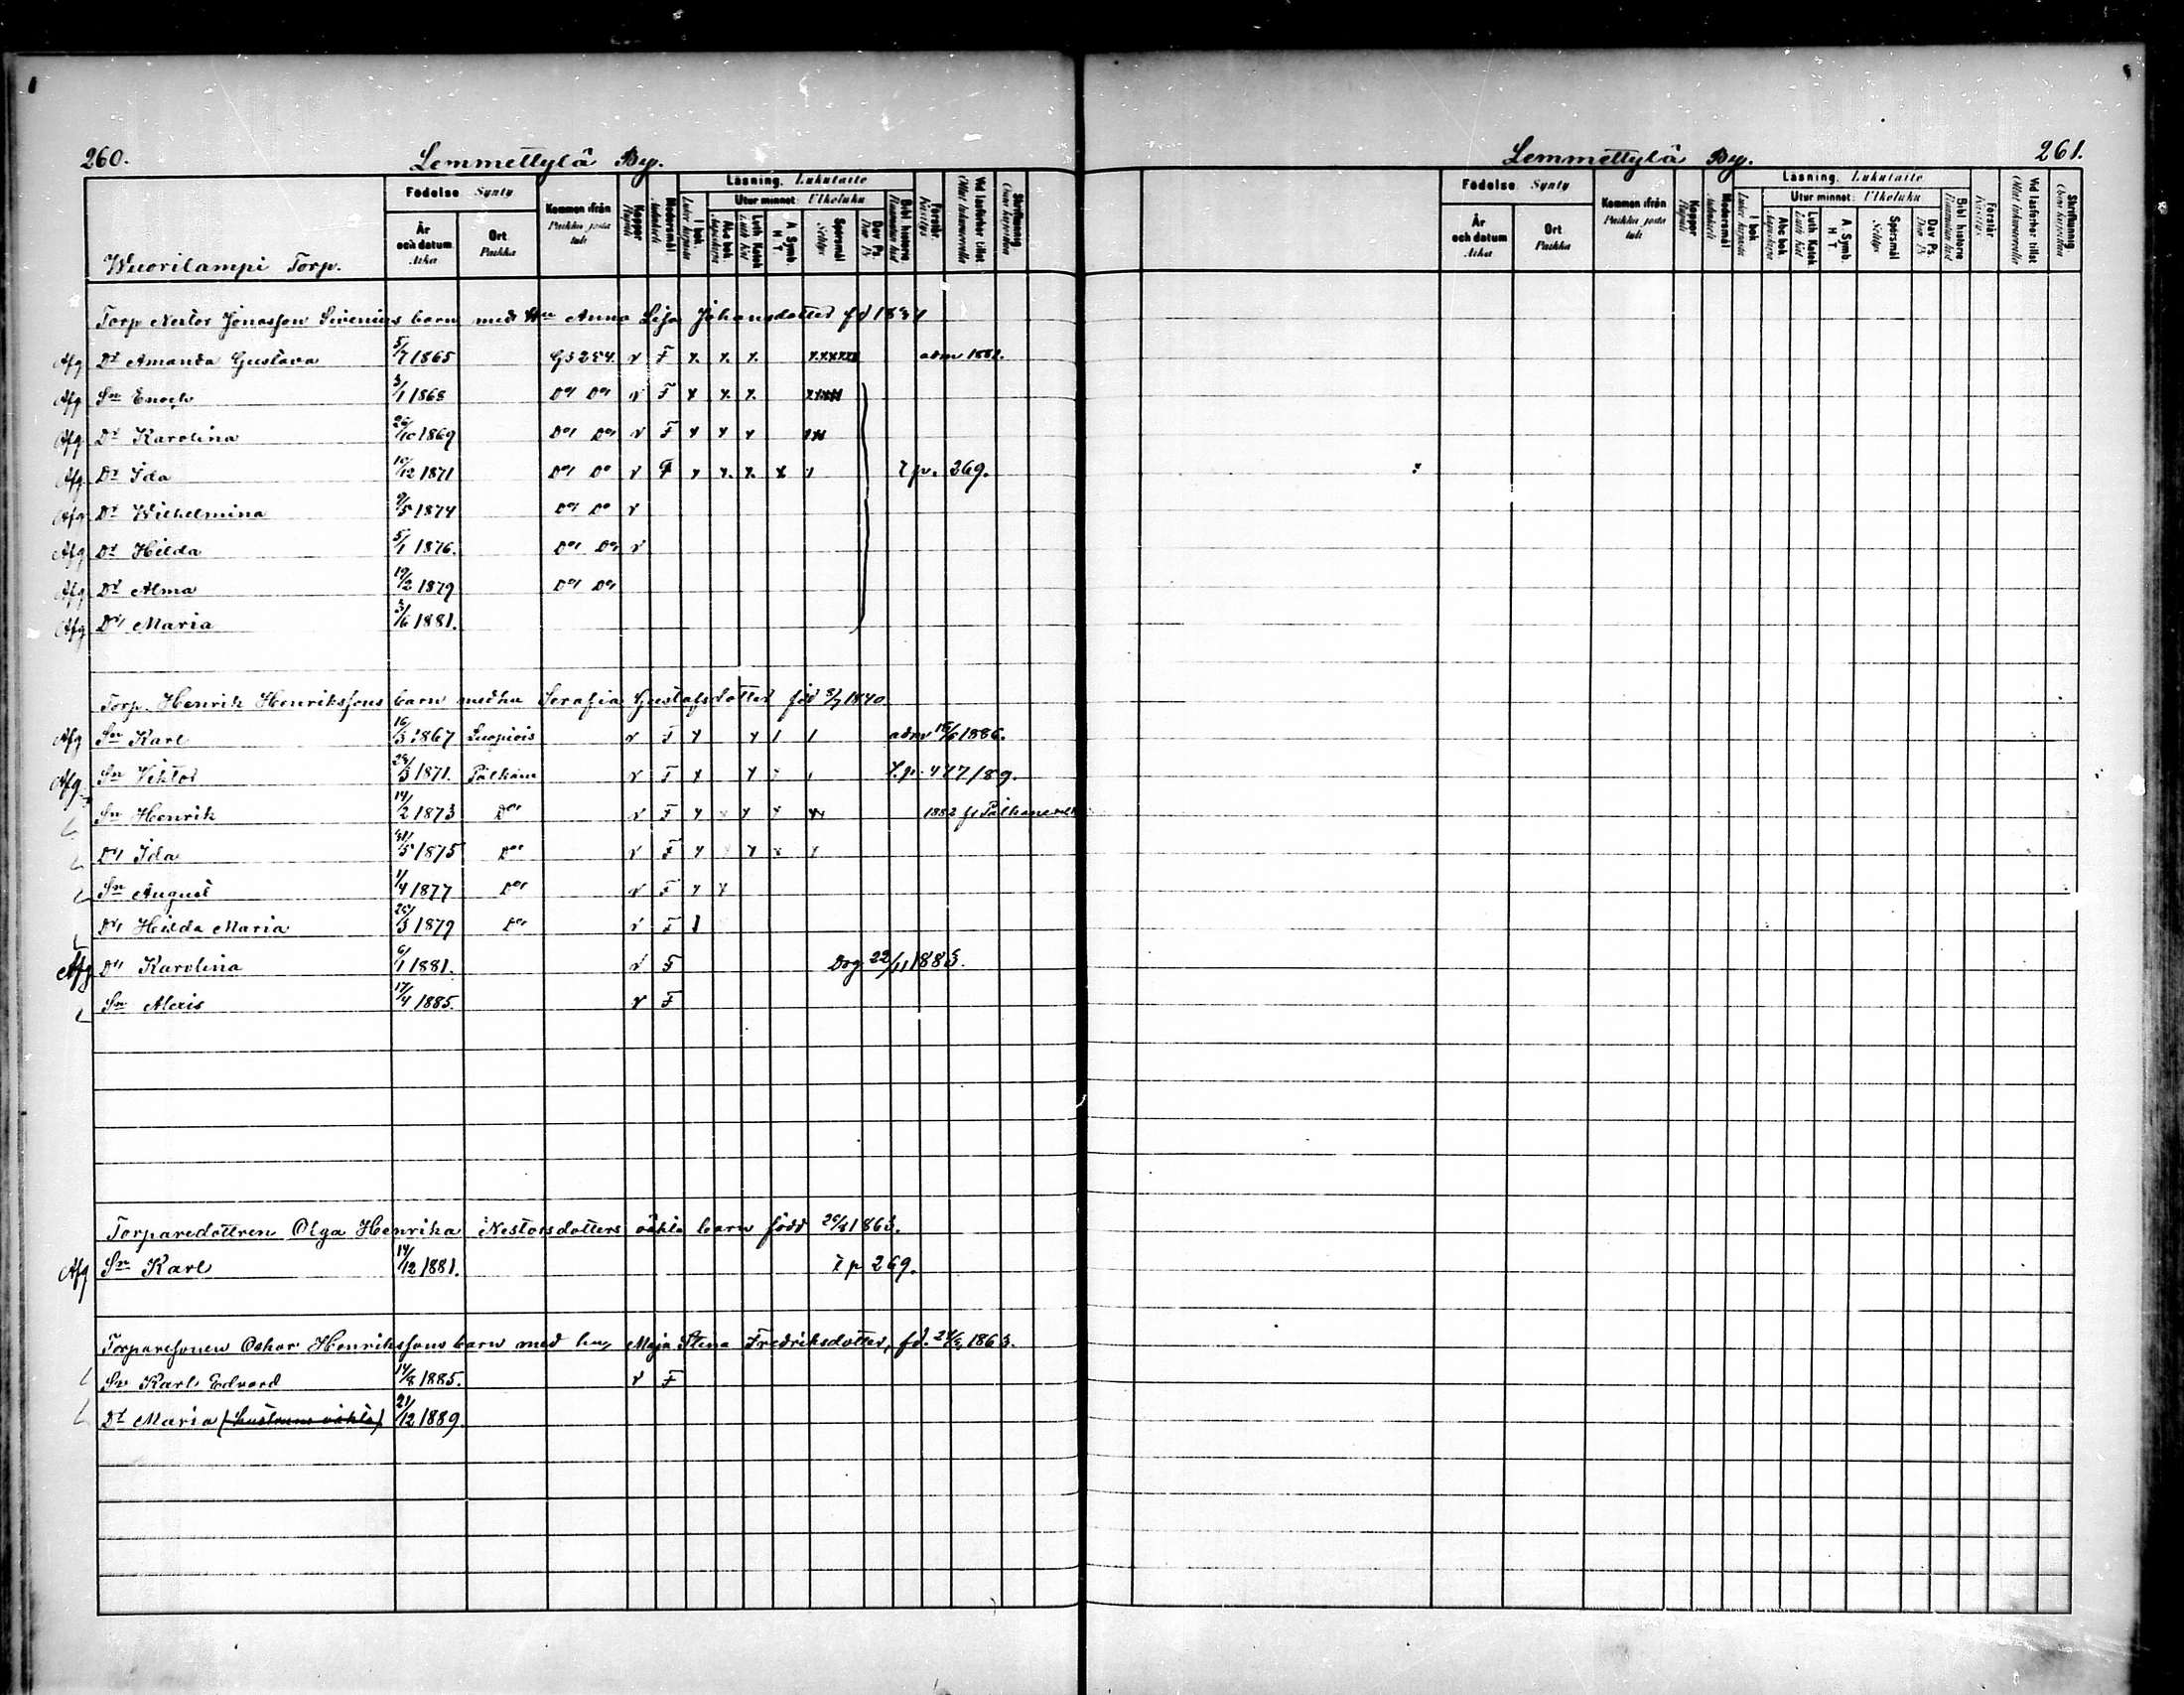 260.
Lemmettylä By.
Wuorilampi Torp.
Födelse Synty
År och datum. Aika
Ort Paikka
Kommen ifrån
Koppor
Modersmål
Läsning. Lukutaito
I bok
Utur minnet Ulkoluku
Abc bok
Luth. Katek.
A. Symb. H. T.
Spörsmål
Dav. Ps.
Bibl. historie
Förstår.
Vid läsförhör tillst.
Skriftkunnig
Torp Nestor Jonasson Sirenius barn med Hu Anna Lisa Johansdotter fd 1831
Afg Dr Amanda Gustava 5/7 1865 GS 254. v F x x x xxxxxx adm 1882.
Afg Sn Enoch 3/1 1868 Do Do v F x x x
Afg Dr Karolina 26/10 1869 Do Do v F x x x
Afg Dr Ida 10/12 1871 Do Do v F x x x x t.p. 269.
Afg Dr Wilhelmina 9/5 1874 Do Do v
Afg Dr Hilda 5/1 1876. Do Do v
Afg Dr Alma 19/2 1879 Do Do
Afg Dr Maria 3/6 1881.
Torp. Henrik Henrikssons barn med hu Serafia Gustafsdotter född 8/7 1840.
Afg Sn Karl 16/3 1867 Luopiois v F x x adm 1886.
Afg Sn Viktor 28/3 1871. Pälkäne v F x x t.p. 477/89.
Sn Henrik 14/2 1873 Do v F x x x x 1882 fr Pälkäne
Dr Ida 31/5 1875 Do v F x x x x
Sn August 1/4 1877 Do v F x x
Dr Hilda Maria 25/3 1879 Do v F
Afg Dr Karolina 6/1 1881. v F Dog 22/11 1883.
Sn Alexis 17/4 1885. v F
Torparedottren Olga Henrika Nestorsdotters oäkta barn född 1863.
Afg Sn Karl 14/12 1881. t p 269.
Torparesonen Oskar Henrikssons barn med hu, Maja Stina Fredriksdotter, fd. 1863.
Sn Karl Edvard 14/8 1885. v F
Dr Maria (hustruns oäkta) 21/12 1889.
Lemmettylä By.
261.
Födelse Synty
År och datum. Aika
Ort Paikka
Kommen ifrån
Koppor
Modersmål
Läsning. Lukutaito
I bok
Utur minnet Ulkoluku
Abc bok
Luth. Katek.
A. Symb. H. T.
Spörsmål
Dav. Ps.
Bibl. historie
Förstår
Vid läsförhör tillst.
Skriftkunnig